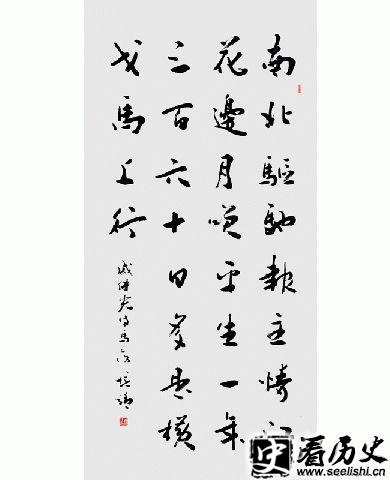 南北驅馳報主情江
花邊月咲平生一年
三百六十日多是橫
戈馬上行
戚继光
史看历史
www.seelishi.cn